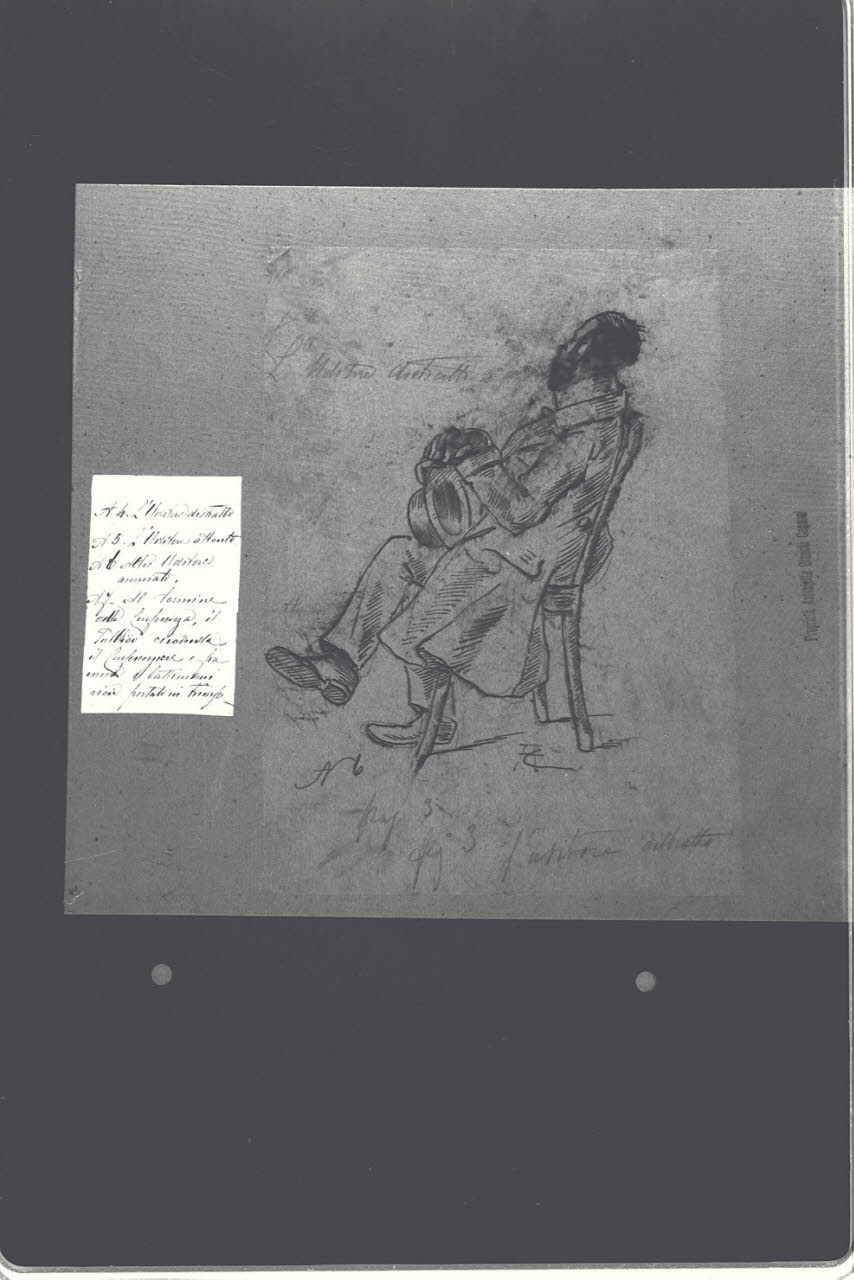 L'Uditore distratto
N 4. L'Uditore distratto
N 5 - L'Uditore attento
N 6 Altro Uditore
annoiato.
N 7 - Al termine
della Conferenza, il
Pubblico circonda
il Conferenziere e fra
i battimani
vien portato in trionfo
N 6
pag 3
fig 3 l'uditore distratto
Proprietà Artistica